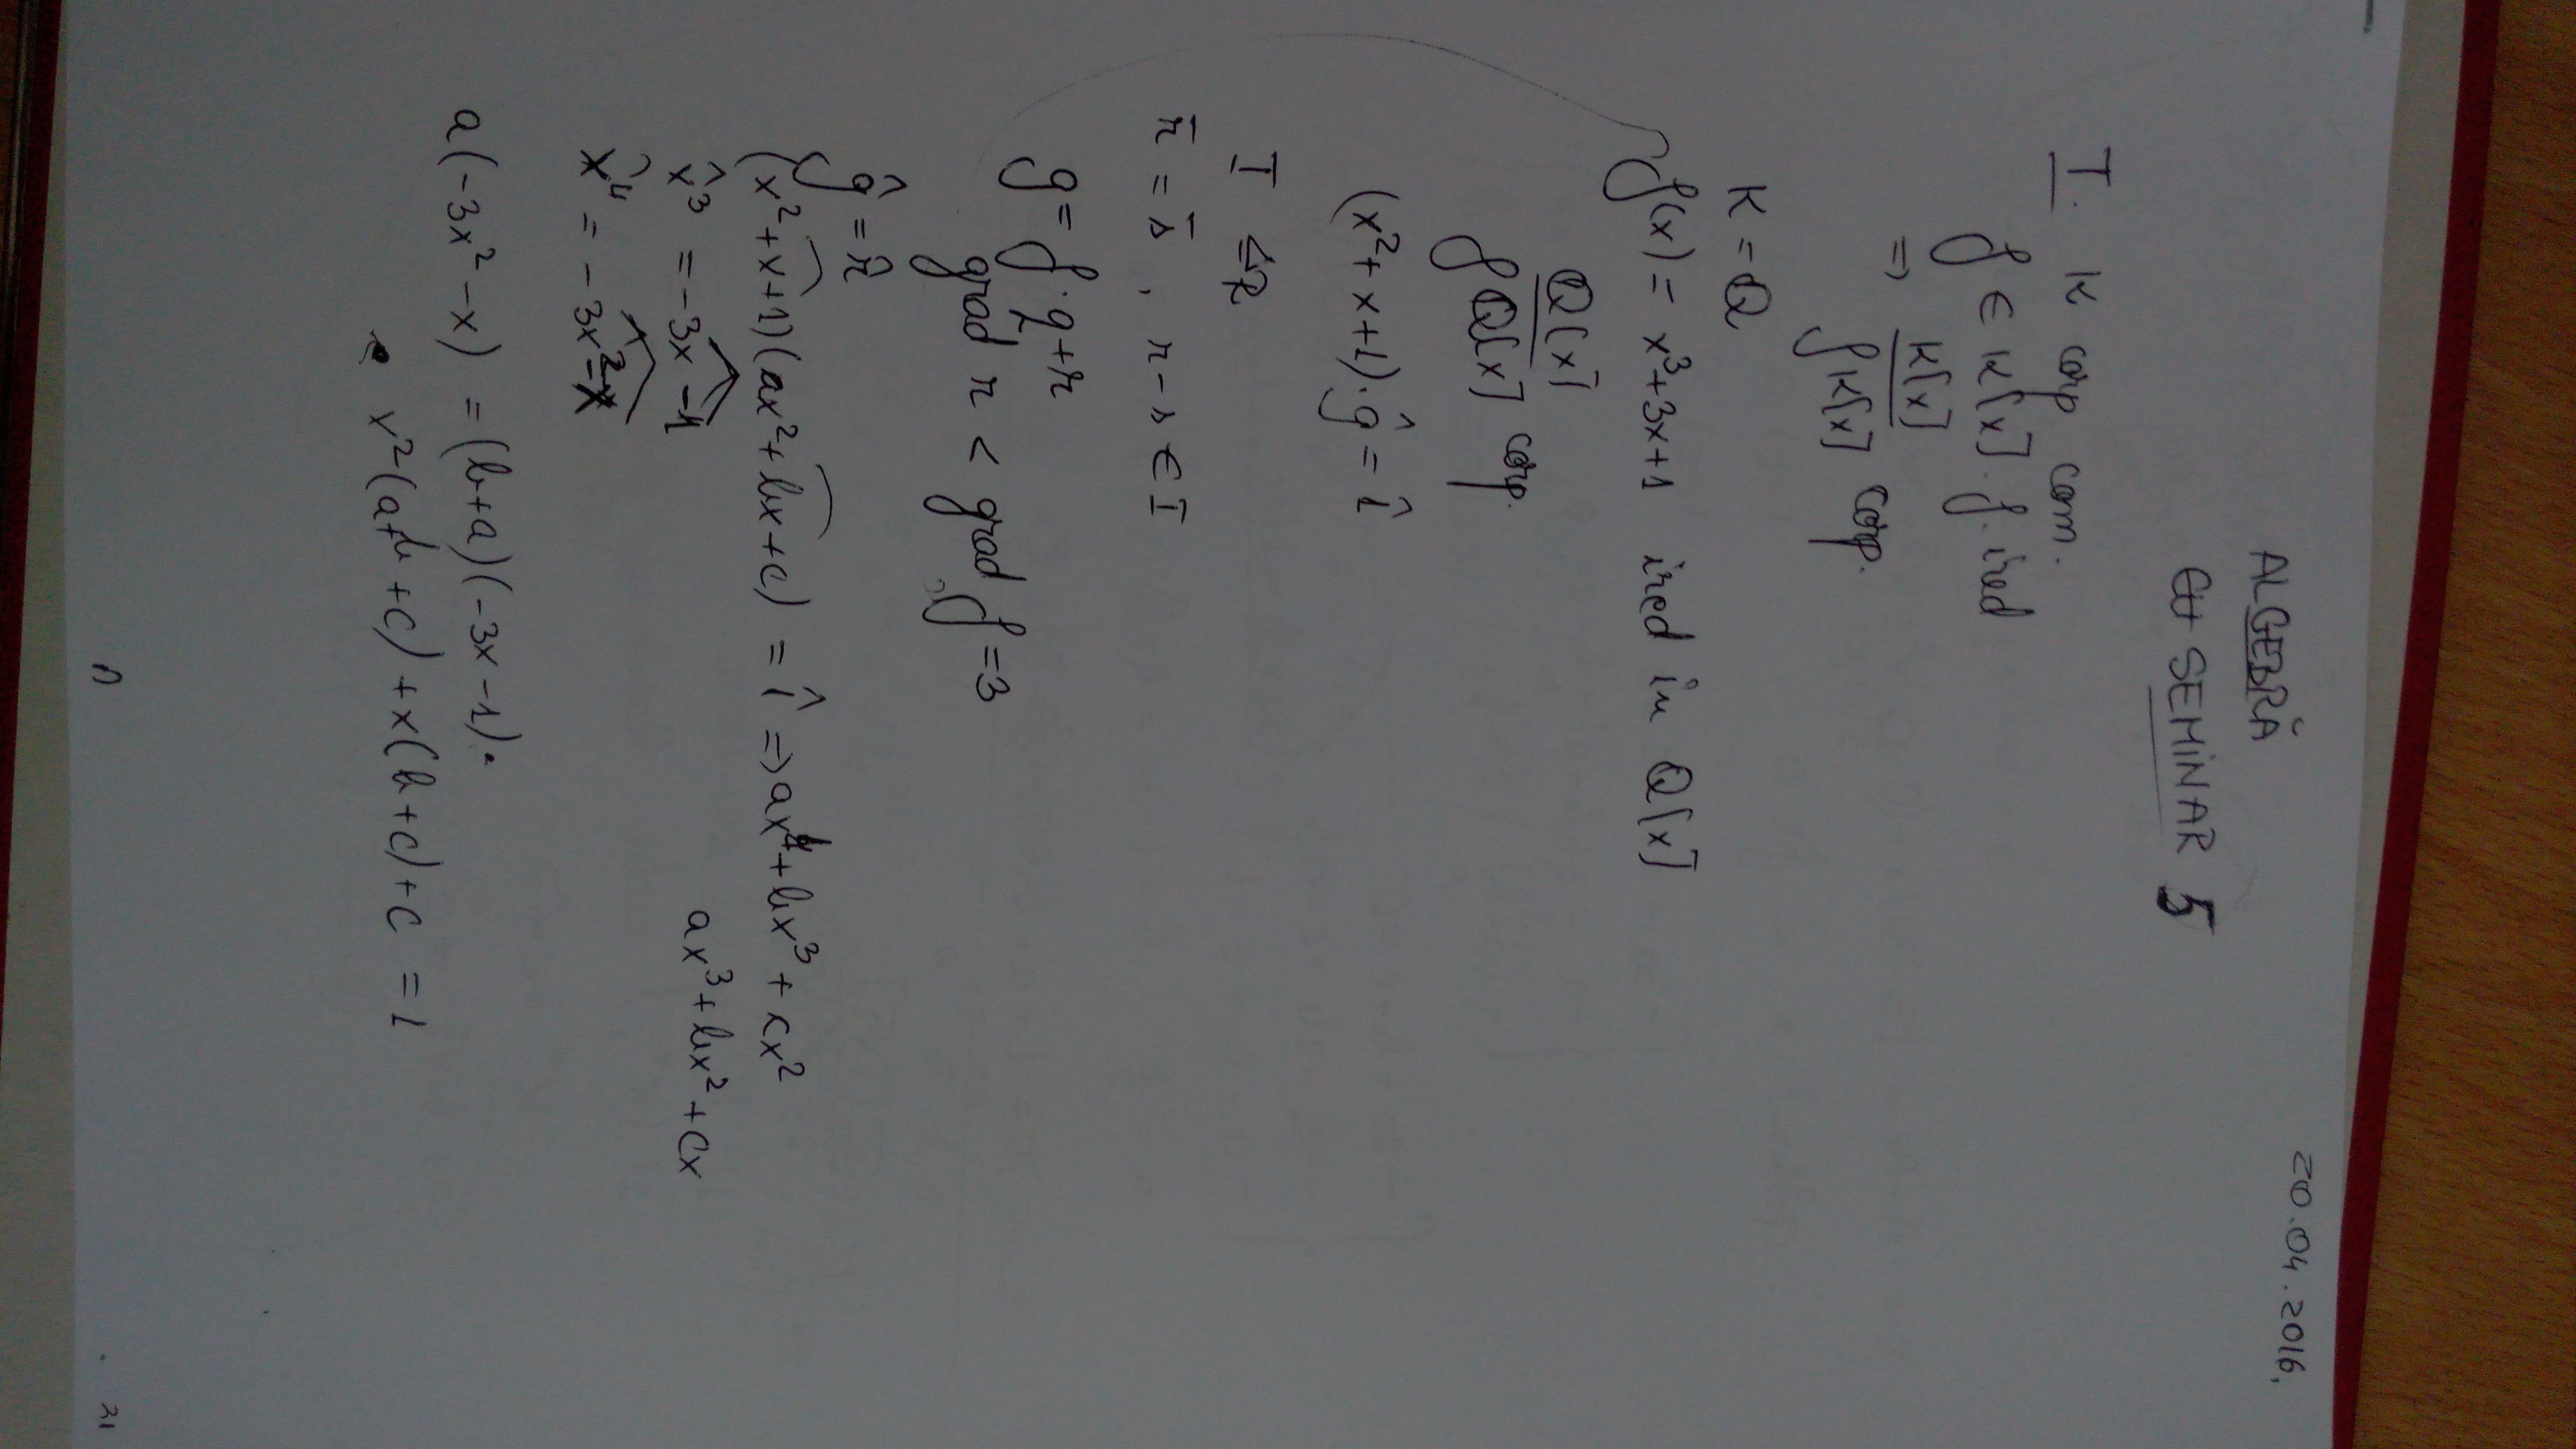 20.04.2016.
ALGEBRĂ
SEMINAR 5
T. K corp com.
f ∈ K[x]. f. ired
=> K[x] / fK[x] corp.
K = Q
f(x) = x³+3x+1 ired in Q[x]
Q[x] / fQ[x] corp.
(x²+x+1)·ĝ = 1̂
I ≤ R
r̄ = s̄, r-s ∈ I
g = f·q+r
grad r < grad f = 3
ĝ = r̂
(x²+x+1)(ax²+bx+c) = 1̂ => ax⁴+bx³+cx²
x̂³ = -3x -1 ax³+bx²+cx
x̂⁴ = -3x²-x
a(-3x²-x) = (b+a)(-3x-1).
x²(a+b+c)+x(b+c)+c = 1